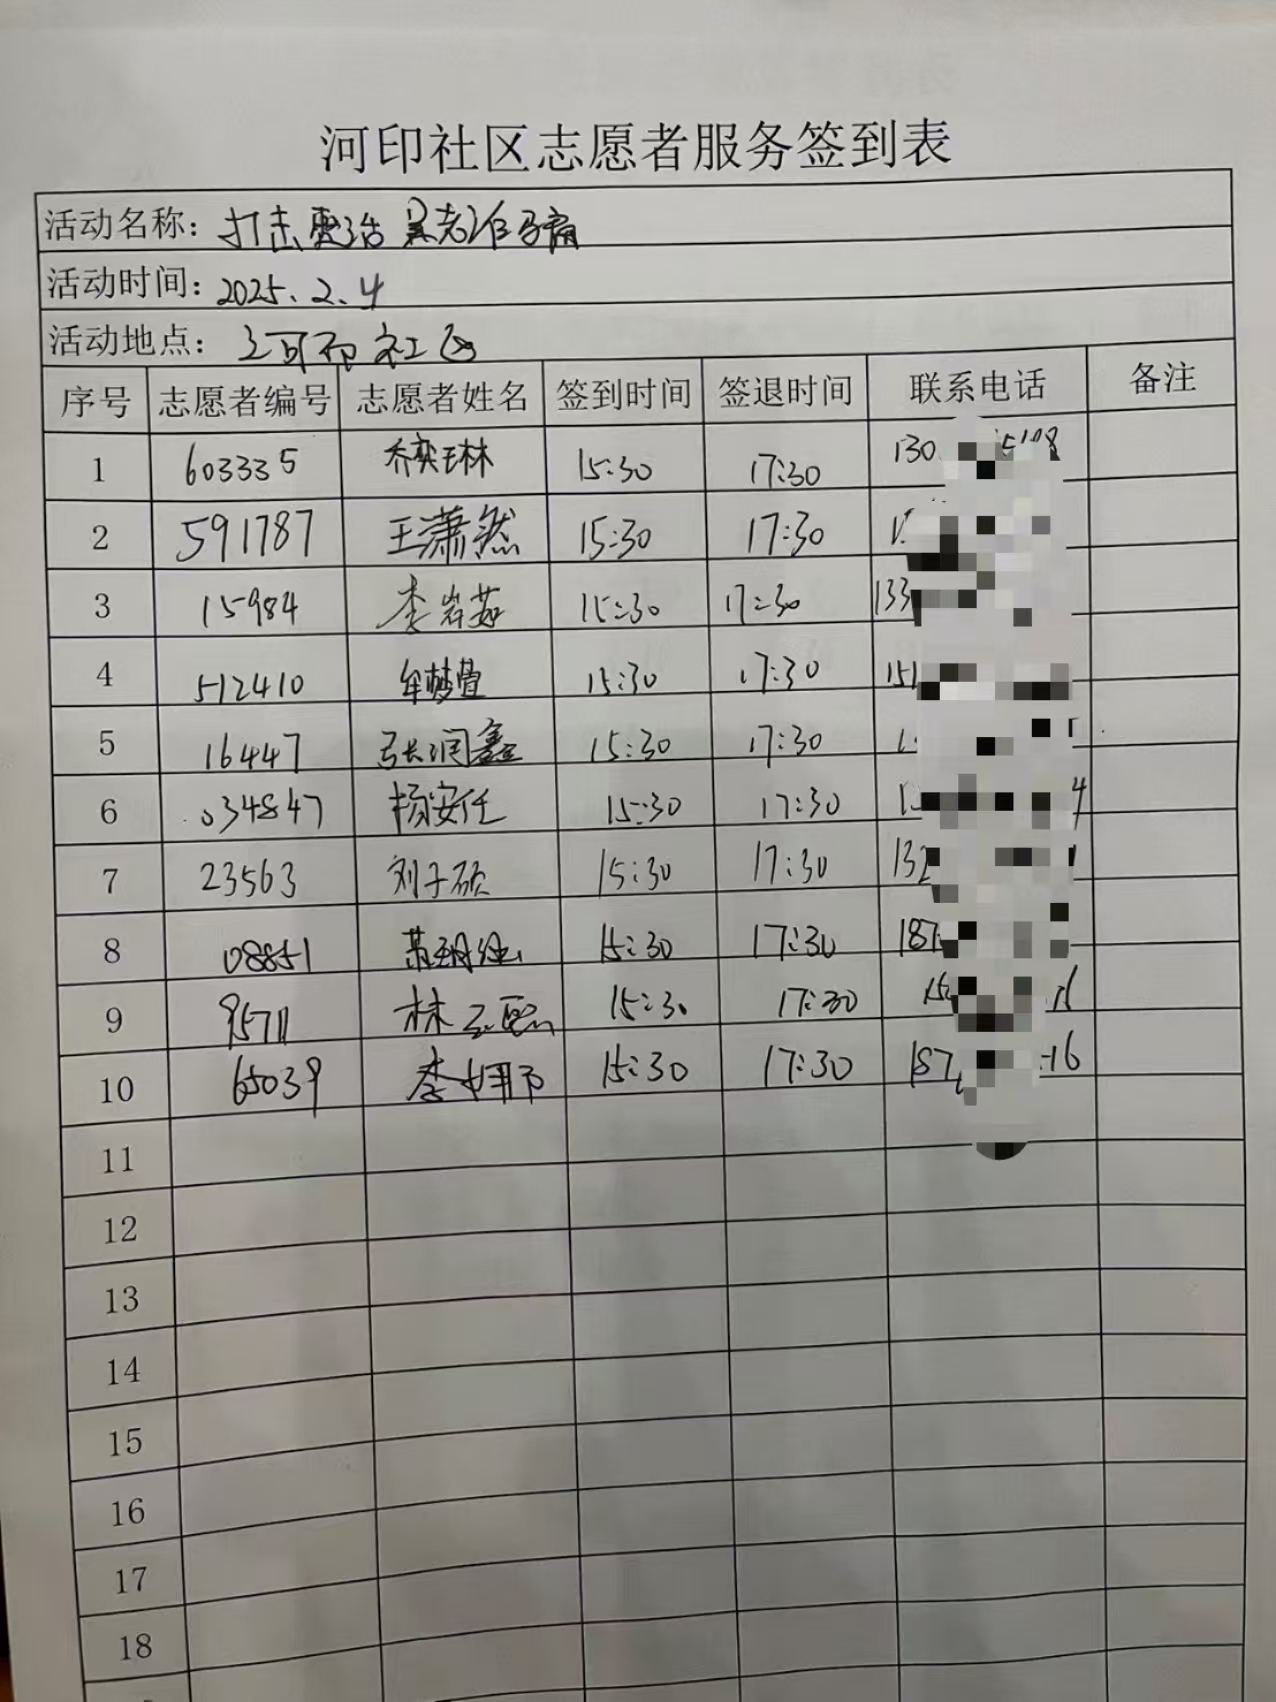 河印社区志愿者服务签到表
活动名称：打击整治养老诈骗
活动时间：2025.2.4
活动地点：河印社区
序号 志愿者编号 志愿者姓名 签到时间 签退时间 联系电话 备注
1 603335 乔奕琳 15:30 17:30 130
2 591787 王潇然 15:30 17:30
3 15984 李岩茹 15:30 17:30 133
4 512410 牟梦萱 15:30 17:30 151
5 16447 张润鑫 15:30 17:30
6 034847 杨安任 15:30 17:30 4
7 23563 刘子硕 15:30 17:30 132
8 08851 15:30 17:30 187
9 95711 林 15:30 17:30 15
10 65039 李娜 15:30 17:30 187 16
11
12
13
14
15
16
17
18